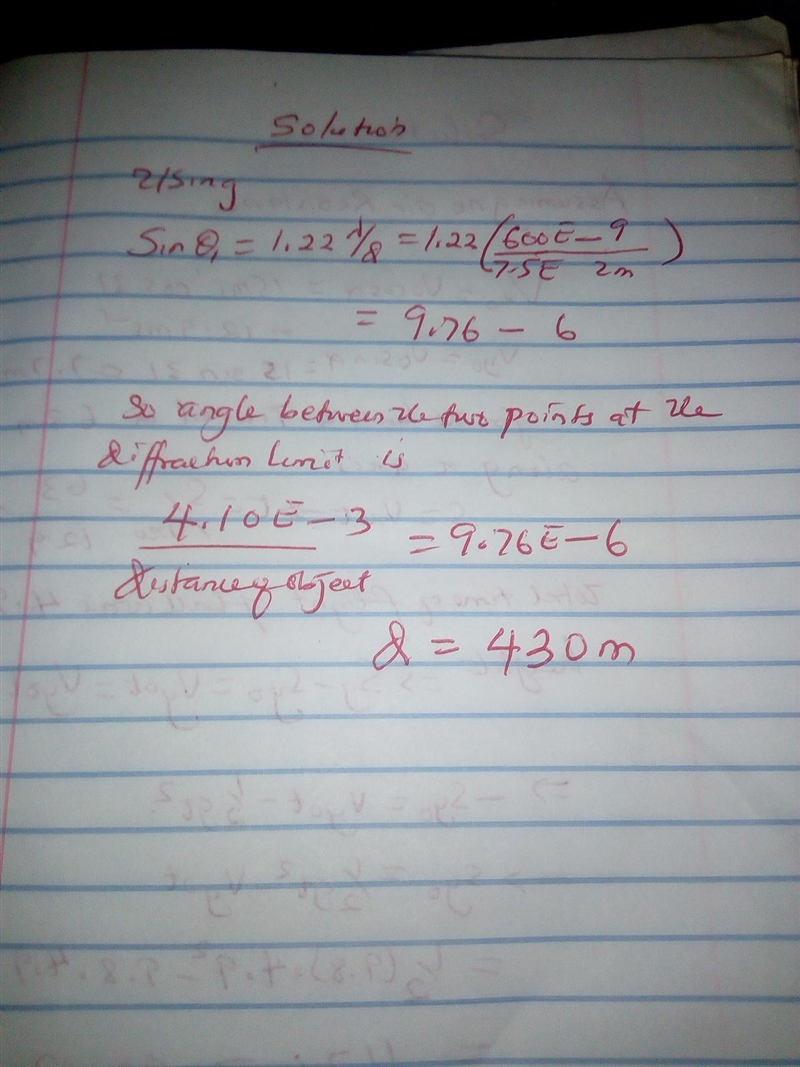 Solution
Using
Sinθ₁ = 1.22 λ/d = 1.22 (600E-9 / 7.5E 2m)
= 9.76 - 6
So angle between the two points at the
diffraction limit is
4.10E-3 / distance of object = 9.76E-6
d = 430m